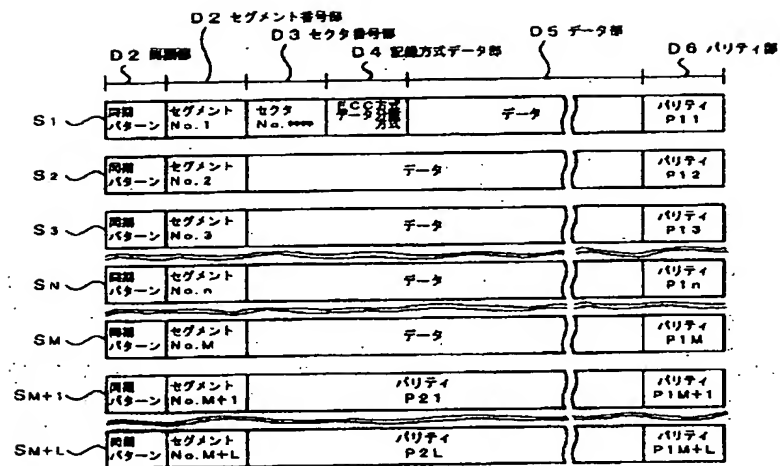 D2 セグメント番号部
D3 セクタ番号部
D5 データ部
D2 同期部
D4 記録方式データ部
D6 パリティ部
S1
同期
パターン
セグメント
No.1
セクタ
No.****
ECC方式
データ分離
方式
データ
パリティ
P11
S2
同期
パターン
セグメント
No.2
データ
パリティ
P12
S3
同期
パターン
セグメント
No.3
データ
パリティ
P13
SN
同期
パターン
セグメント
No.n
データ
パリティ
P1n
SM
同期
パターン
セグメント
No.M
データ
パリティ
P1M
SM+1
同期
パターン
セグメント
No.M+1
パリティ
P21
パリティ
P1M+1
SM+L
同期
パターン
セグメント
No.M+L
パリティ
P2L
パリティ
P1M+L